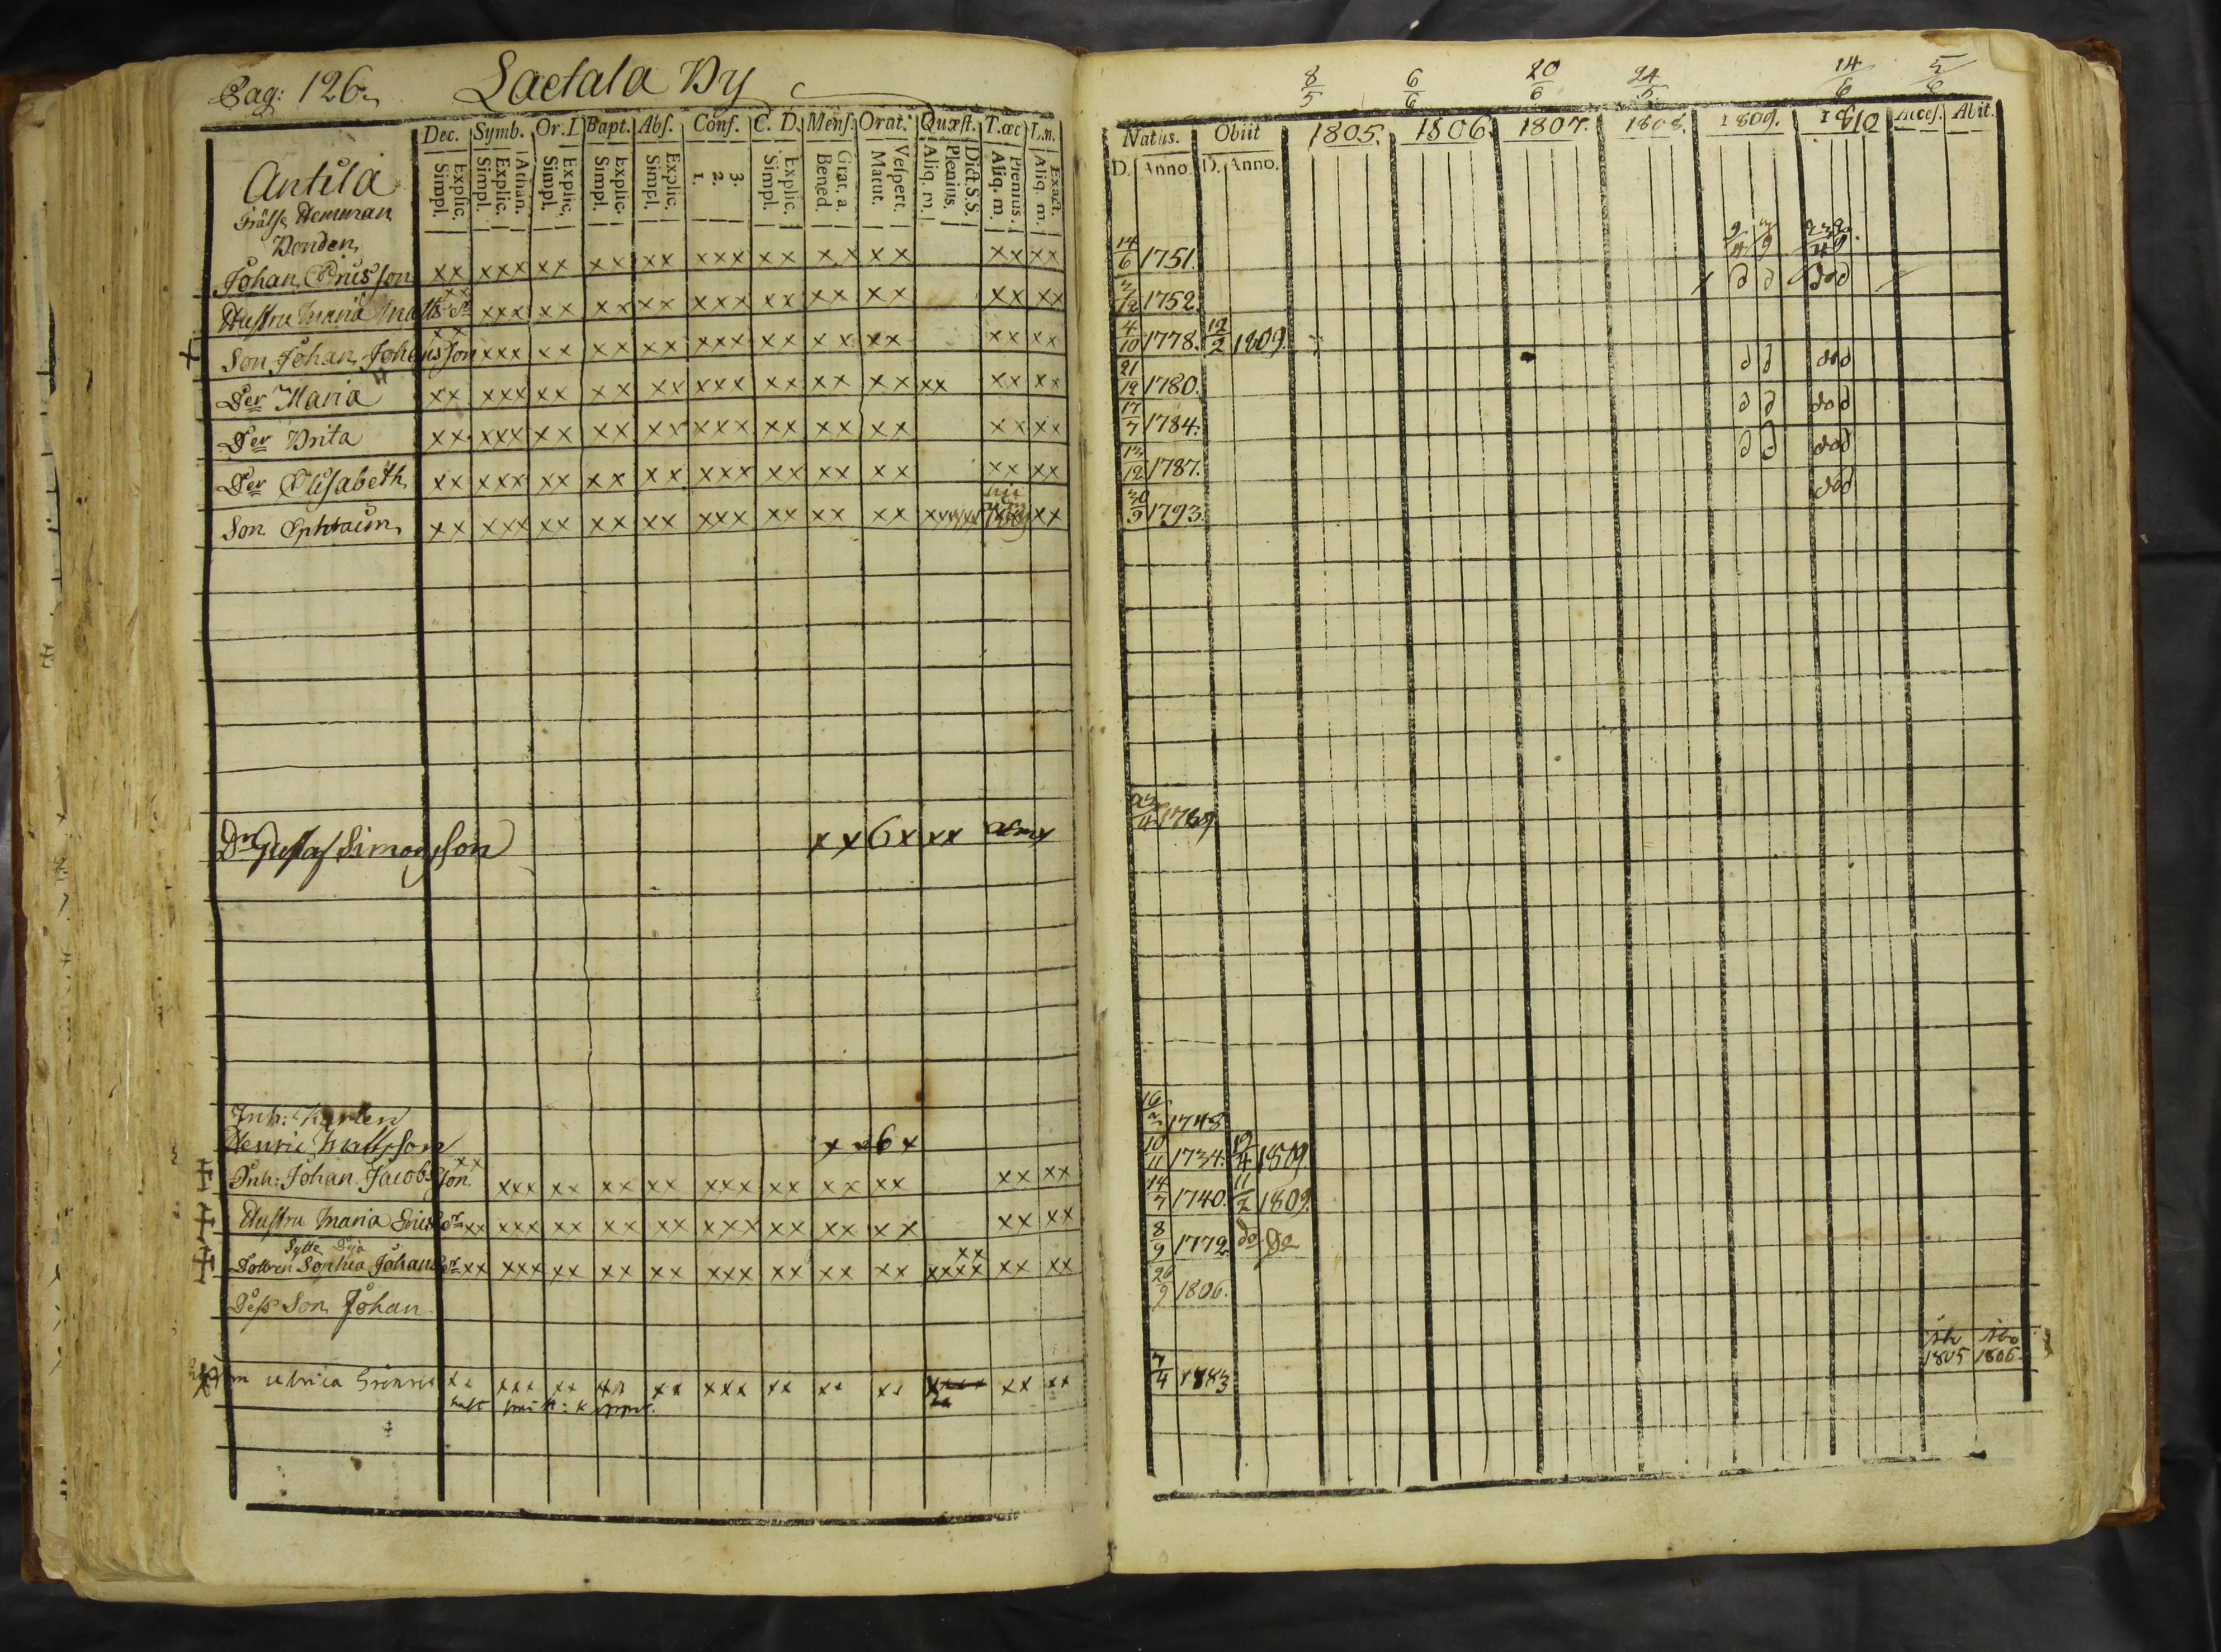 Pag: 126. Laetala By
Dec. Symb. Or. D Bapt. Abs. Conf. C. D. Mens. Orat. Quæst. T. œc L. n.
Explic. Simpl. Athan. Explic. Simpl. Explic. Simpl. Explic. Simpl. Explic. Simpl. 3. 2. 1. Explic. Simpl. Grat. a. Bened. Vespert. Matut. Dict. S. S. Plenius. Aliq. m. Plenius. Aliq. m. Exact. Aliq. m.
Antila
Frälse Hemman
Bonden
Johan Ericsson xx xxx xx xx xx xxx xx xx xx xx xx
Hustru Maria Matts dr xx xxx xx xx xx xxx xx xx xx xx xx
+ Son Johan Johansson xx xxx xx xx xx xxx xx xx xx xx xx
Der Maria xx xxx xx xx xx xxx xx xx xx xx xx xx
Der Brita xx xxx xx xx xx xxx xx xx xx xx xx
Der Elisabeth xx xxx xx xx xx xxx xx xx xx xx xx
Son Ephraim xx xxx xx xx xx xxx xx xx xx xx
Dr Gustaf Simonsson x x 6 x xx
Inh: Karlen
Henric Mattsson x x 6 x
Inh: Johan Jacobsson xx xxx xx xx xx xxx xx xx xx xx xx
Hustru Maria Erics dr xx xxx xx xx xx xxx xx xx xx xx xx
Sytt
Dottren Sophia Johans dr xx xxx xx xx xx xxx xx xx xx xxxx xx xx xx
Dess Son Johan
xx xxx xx xx xx xxx xx xx xx xx xx
8/5 6/6 20/6 24/5 14/6 5/6
Natus. Obiit 1805. 1806. 1807. 1808. 1809. 1810 Acces. Abit.
D. Anno D. Anno.
14/6 1751.
3/12 1752.
4/10 1778. 12/2 1809.
21/12 1780.
17/7 1784.
13/12 1787.
30/9 1793.
1769
16/2 1748
10/11 1734. 12/4 1809
14/7 1740. 11/2 1809.
8/9 1772 do do
26/9 1806.
1805 1806
7/4 1783